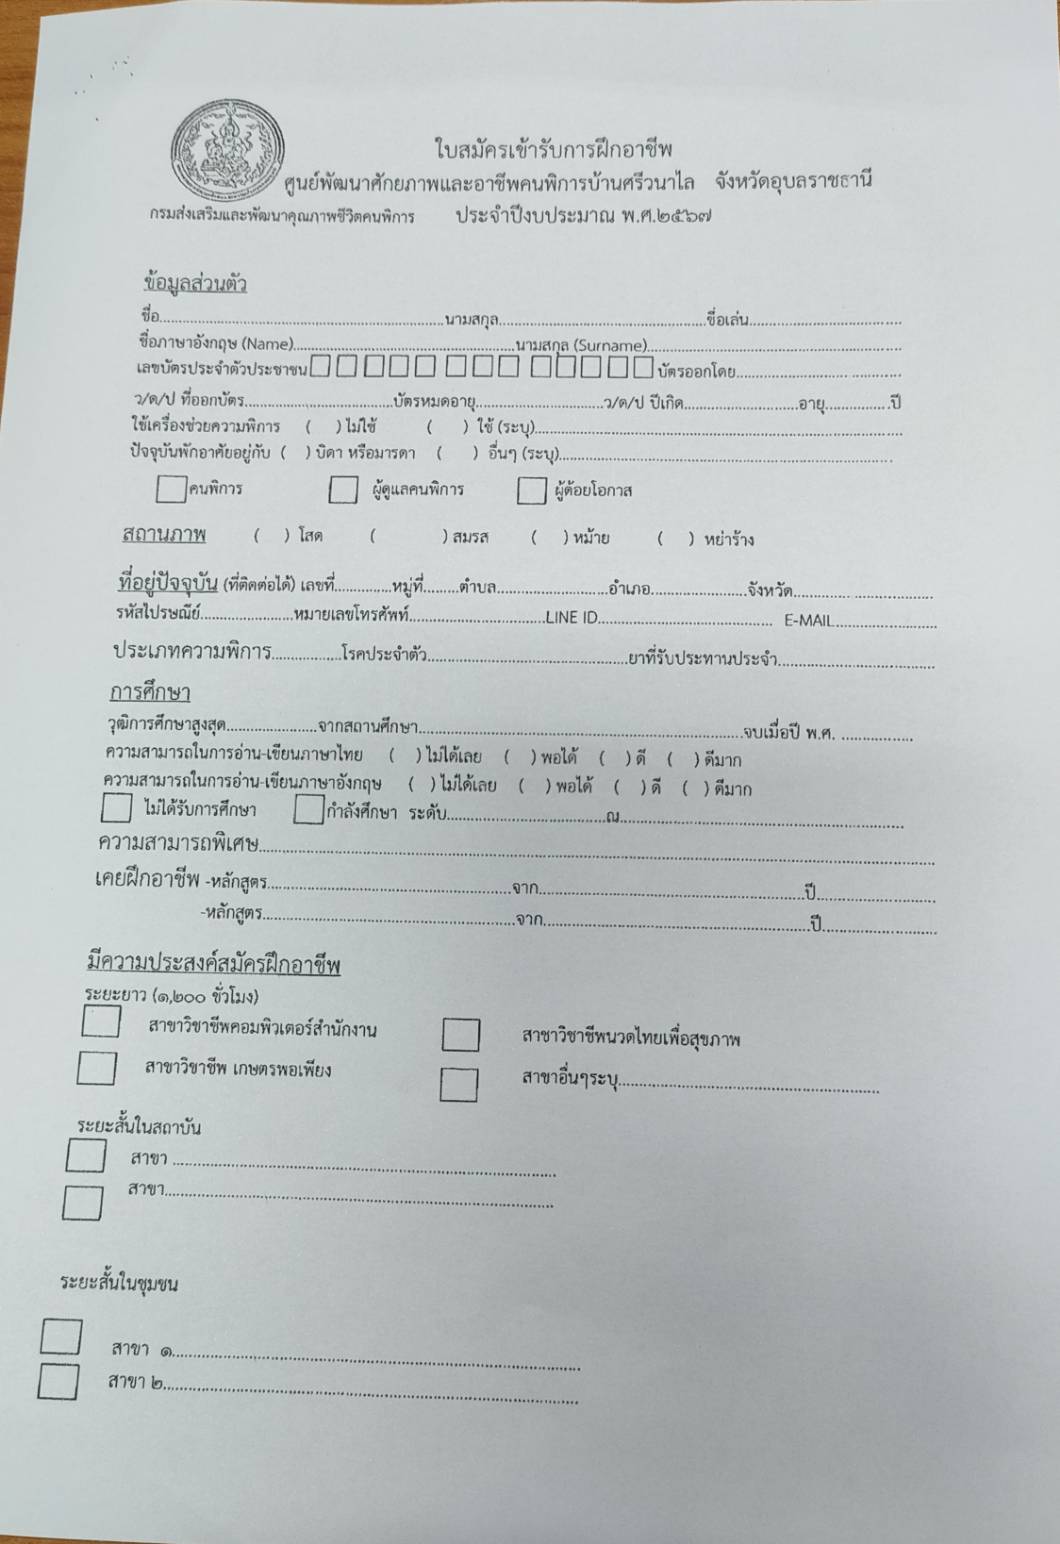 ใบสมัครเข้ารับการฝึกอาชีพ
ศูนย์พัฒนาศักยภาพและอาชีพคนพิการบ้านศรีวนาไล จังหวัดอุบลราชธานี
กรมส่งเสริมและพัฒนาคุณภาพชีวิตคนพิการ ประจำปีงบประมาณ พ.ศ.๒๕๖๗
ข้อมูลส่วนตัว
ชื่อ..........นามสกุล..........ชื่อเล่น..........
ชื่อภาษาอังกฤษ (Name)..........นามสกุล (Surname)..........
เลขบัตรประจำตัวประชาชน บัตรออกโดย..........
ว/ด/ป ที่ออกบัตร..........บัตรหมดอายุ..........ว/ด/ป ปีเกิด..........อายุ..........ปี
ใช้เครื่องช่วยความพิการ ( ) ไม่ใช้ ( ) ใช้ (ระบุ)..........
ปัจจุบันพักอาศัยอยู่กับ ( ) บิดา หรือมารดา ( ) อื่นๆ (ระบุ)..........
คนพิการ ผู้ดูแลคนพิการ ผู้ด้อยโอกาส
สถานภาพ ( ) โสด ( ) สมรส ( ) หม้าย ( ) หย่าร้าง
ที่อยู่ปัจจุบัน (ที่ติดต่อได้) เลขที่..........หมู่ที่..........ตำบล..........อำเภอ..........จังหวัด..........
รหัสไปรษณีย์..........หมายเลขโทรศัพท์..........LINE ID.......... E-MAIL..........
ประเภทความพิการ..........โรคประจำตัว..........ยาที่รับประทานประจำ..........
การศึกษา
วุฒิการศึกษาสูงสุด..........จากสถานศึกษา..........จบเมื่อปี พ.ศ. ..........
ความสามารถในการอ่าน-เขียนภาษาไทย ( ) ไม่ได้เลย ( ) พอได้ ( ) ดี ( ) ดีมาก
ความสามารถในการอ่าน-เขียนภาษาอังกฤษ ( ) ไม่ได้เลย ( ) พอได้ ( ) ดี ( ) ดีมาก
ไม่ได้รับการศึกษา กำลังศึกษา ระดับ..........ณ..........
ความสามารถพิเศษ..........
เคยฝึกอาชีพ -หลักสูตร..........จาก..........ปี..........
-หลักสูตร..........จาก..........ปี..........
มีความประสงค์สมัครฝึกอาชีพ
ระยะยาว (๑,๒๐๐ ชั่วโมง)
สาขาวิชาชีพคอมพิวเตอร์สำนักงาน สาขาวิชาชีพนวดไทยเพื่อสุขภาพ
สาขาวิชาชีพ เกษตรพอเพียง สาขาอื่นๆระบุ..........
ระยะสั้นในสถาบัน
สาขา ..........
สาขา..........
ระยะสั้นในชุมชน
สาขา ๑..........
สาขา ๒..........